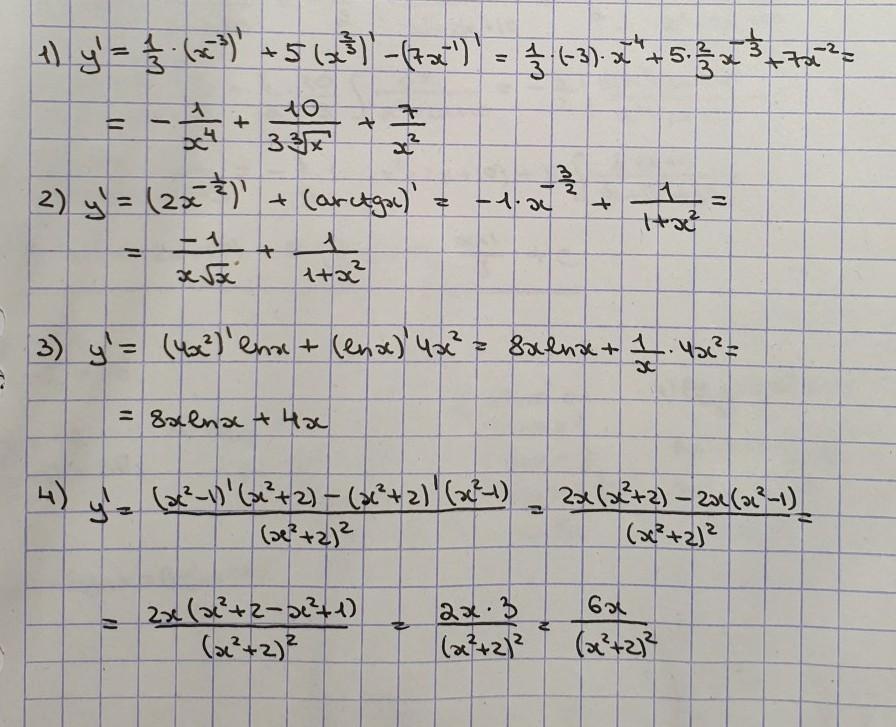 1) y' = 1/3 · (x⁻³)' + 5 (x^(2/3))' - (7x⁻¹)' = 1/3 · (-3) · x⁻⁴ + 5 · 2/3 x^(-1/3) + 7x⁻² =
= - 1/x⁴ + 10/(3∛x) + 7/x²
2) y' = (2x^(-1/2))' + (arctgx)' = -1 · x^(-3/2) + 1/(1+x²) =
= -1/(x√x) + 1/(1+x²)
3) y' = (4x²)' lnx + (lnx)' 4x² = 8xlnx + 1/x · 4x² =
= 8xlnx + 4x
4) y' = ((x²-1)' (x²+2) - (x²+2)' (x²-1))/(x²+2)² = (2x(x²+2) - 2x(x²-1))/(x²+2)² =
= (2x(x²+2-x²+1))/(x²+2)² = (2x · 3)/(x²+2)² = 6x/(x²+2)²